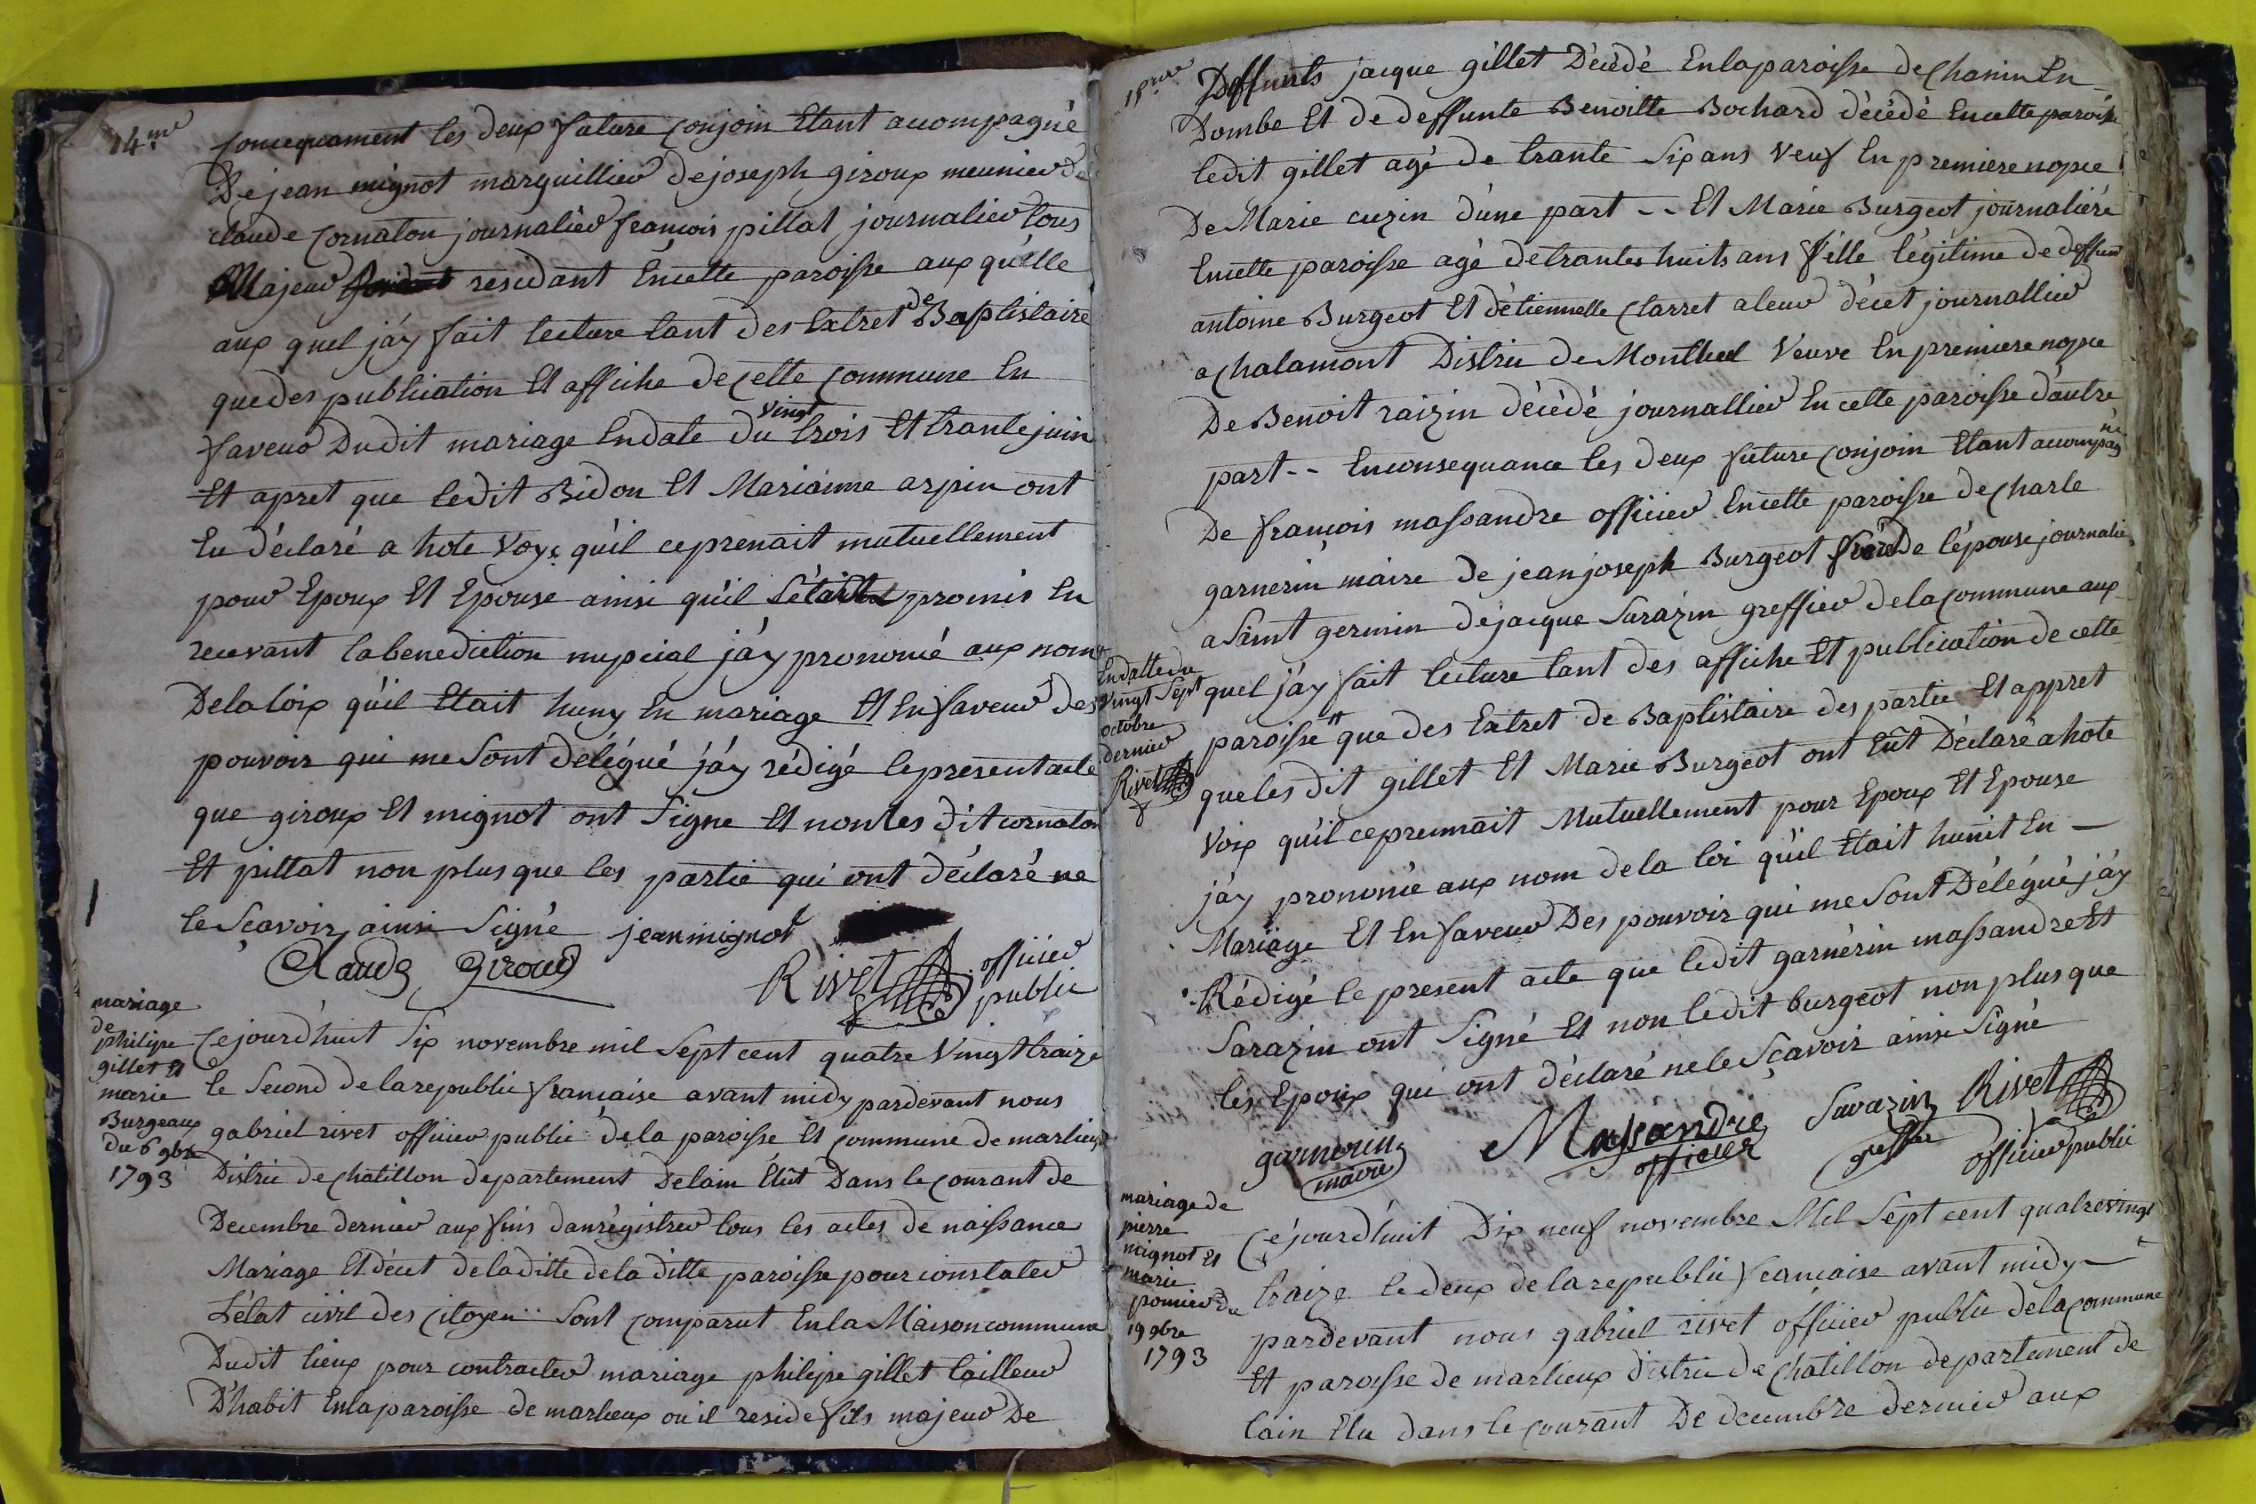 14.me
conseqnament les deux future conjoin Etant acompagné
De jean mignot marguillier de joseph giroux meunier de
claude cornaton journalier francois pillat journalier tous
Majeur residant Encette paroisse aux qu'elle
aux quel j'ay fait lecture tant des Extret de Baptistaire
que des publication Et affiche de cette commune En
faveur Dudit mariage Endate du vingt trois Et trante juin
Et apret que ledit Bidon Et Marianne arpin ont
Eu déclaré a hote voye qu'il ceprenait mutuellement
pour Epoux Et Epouse ainsi qu'il s'était promis En
recevant labenediction nupcial j'ay prononcé aux nom
Delaloix qu'il Etait huny En mariage Et En faveur des
pouvoir qui me Sont délégué j'ay rédigé lepresent acte
que giroux Et mignot ont Signe Et non les dit cornaton
Et pillat non plus que les partie qui ont déclaré ne
le Sçavoir ainsi Signé jean mignot
Claude giroud Rivet officier
public
mariage
de
philipe
gillet Et
marie
Burgeaux
du 6 9bre
1793
Cejourd'huit Six novembre mil Sept cent quatre Vingt traize
le Second de la republic francaise avant midy pardevant nous
gabriel rivet officier public de la paroisse Et commune de marlieux
Distric de chatillon departement Delain Elut Dans le courant de
Decembre dernier aux fins danrégistrer tous les actes de naissance
Mariage Et décet de laditte de la ditte paroisse pour constater
L'état civil des citoyen Sont comparut Enla Maison commune
Dudit lieux pour contracter mariage philipe gillet tailleur
D'habit Enla paroisse de marlieux ou il reside fils majeur De
15.me
Deffunts jacque gillet Décédé Enlaparoisse de chanin En
Dombe Et de deffunte Benoitte Bochard décédé Encette paroisse
ledit gillet agé de trante Six ans veuf En premiere nopce
De Marie cuzin d'une part -- Et Marie Burgeot journaliére
Encette paroisse agé de trantes huits ans fille légitime de deffunt
antoine Burgeot Et d'étiennette clarret a leur décet journallier
a chalamont Distric de Montluel Veuve En premiere nopce
De Benoit raizin décédé journallier En cette paroisse d'autre
part -- Enconsequance les deux future conjoin Etant accompagné
De francois massandre officier Encette paroisse de charle
garnerin maire de jean joseph Burgeot frere De lépouse journalier
a Saint germin de jacque Sarazin greffier de la commune aux
quel j'ay fait lecture tant des affiche Et publication de cette
Endatte du
vingt Sept
octobre
dernier
Rivet
paroisse que des Extret de Baptistaire des partie Et appret
que les dit gillet Et Marie Burgeot ont Eût Déclaré a hote
Voix qu'il ceprennait Mutuellement pour Epoux Et Epouse
j'ay prononcé aux nom de la loi qu'il Etait hunit En —
Mariage Et En faveur Des pouvoir qui me Sont Délégué j'ay
Rédigé le present acte que ledit garnérin massandre Et
Sarazin ont Signé Et non ledit burgeot non plus que
les Epoux qui ont déclaré ne le Sçavoir ainsi Signé
garnerin Massandre Sarazin Rivet
maire officier greffier officier public
mariage de
pierre
mignot Et
marie
pomier du
19 9bre
1793
Céjourd'huit Dix neuf novembre Mil Sept cent quatre vingt
traize le deux de la republic francaise avant midy —
pardevant nous gabriel rivet officier public de la commune
Et paroisse de marlieux distric de chatillon departement de
lain Elu dans le courant De decembre dernier aux